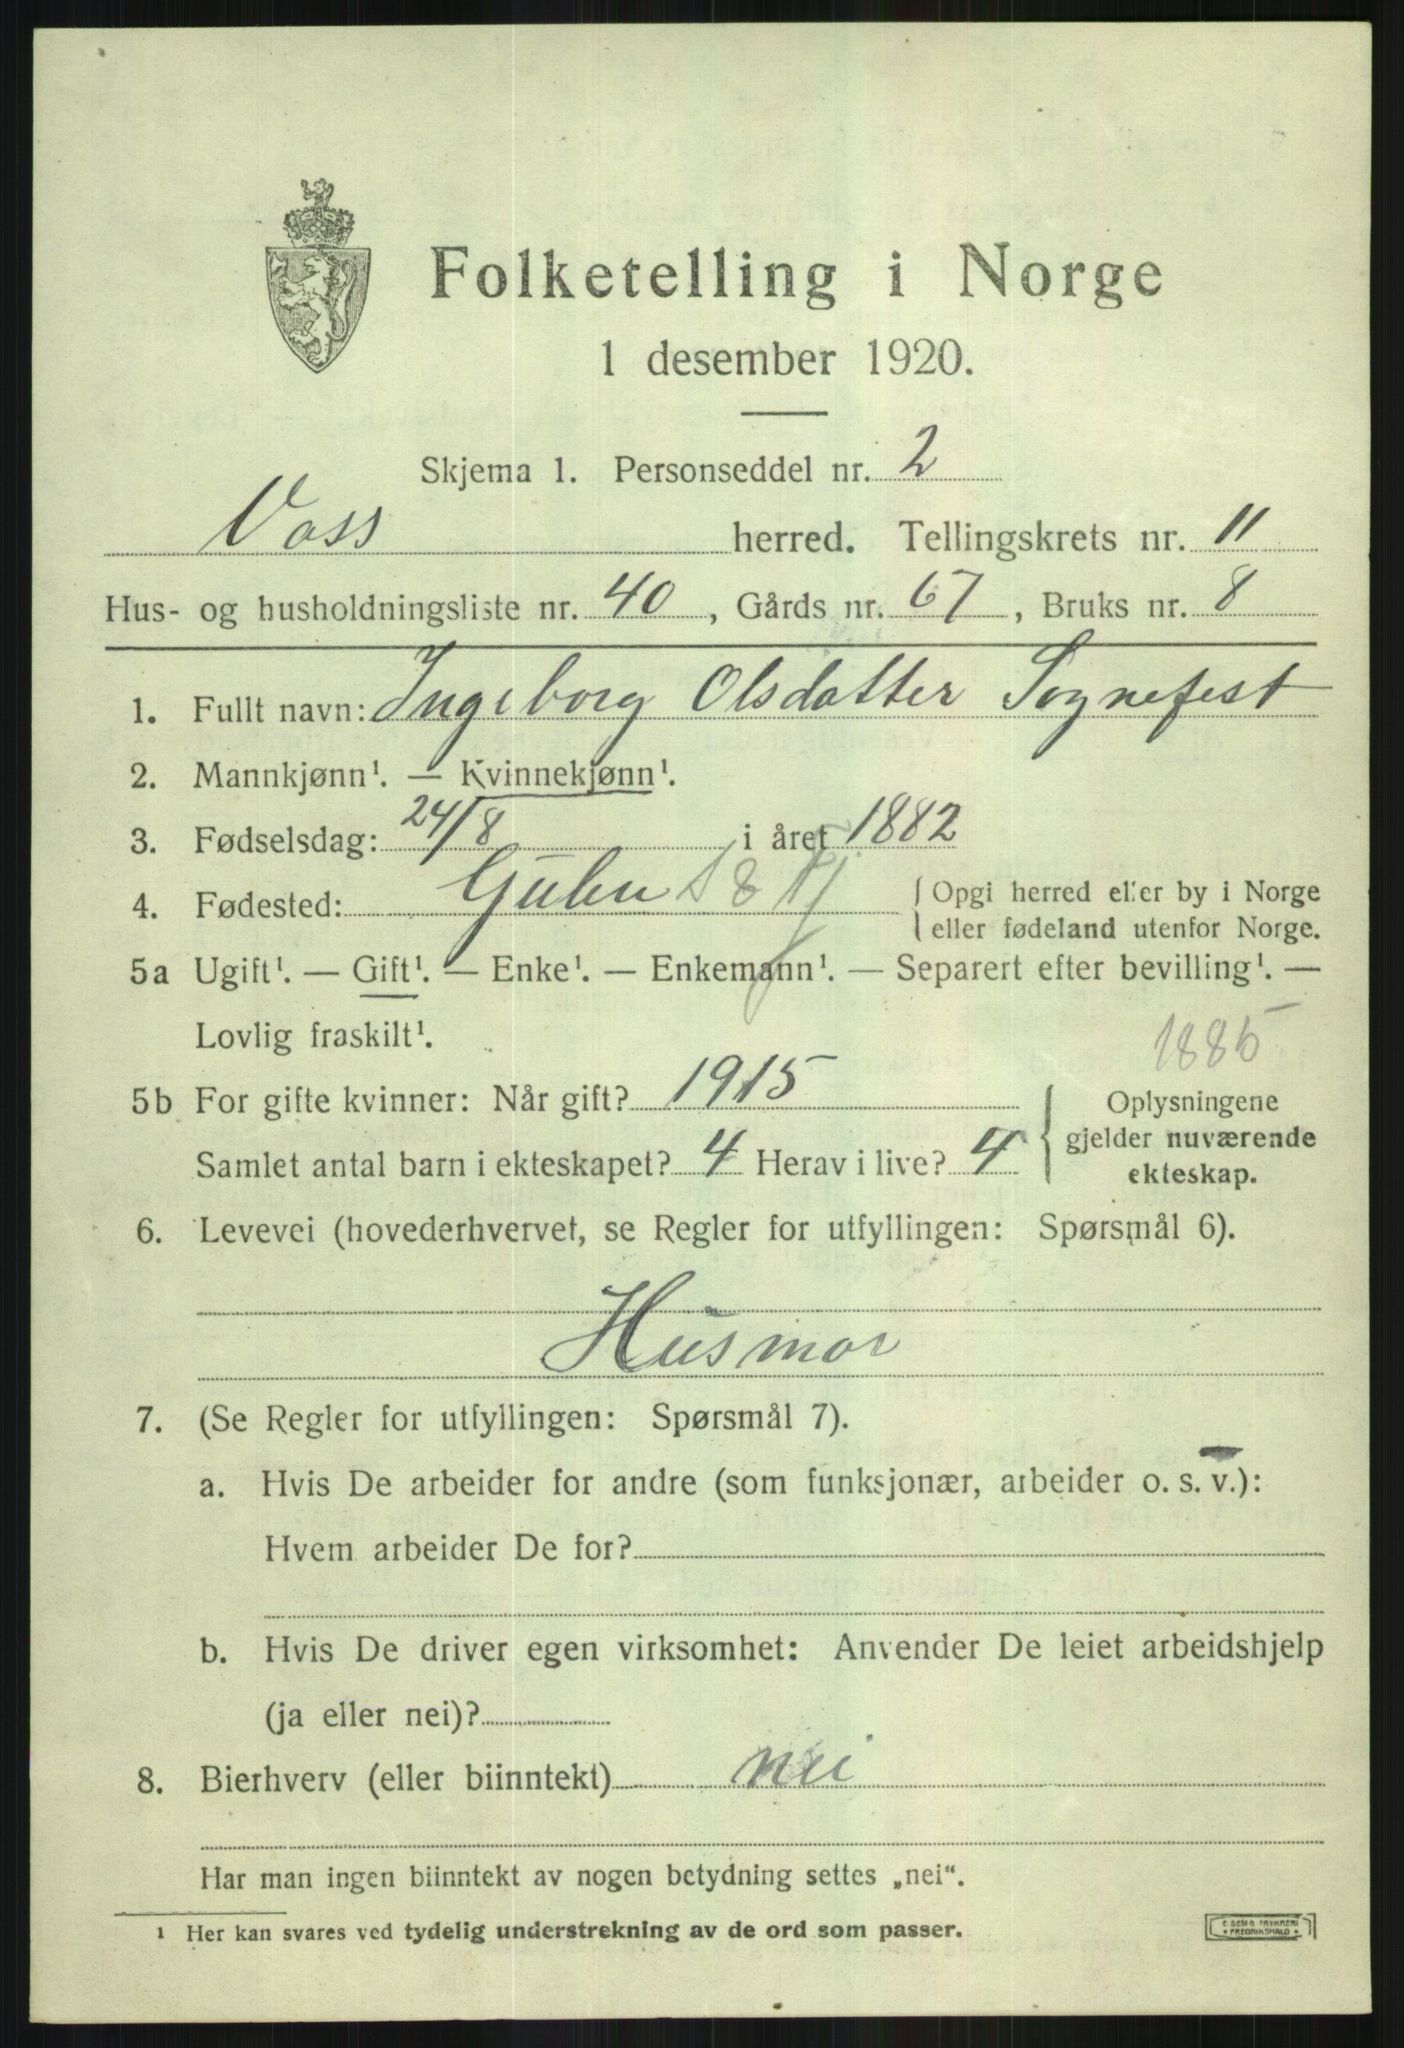 Folketelling i Norge
1 desember 1920.
Skjema 1. Personseddel nr. 2
Voss herred. Tellingskrets nr. 11
Hus- og husholdningsliste nr. 40, Gårds nr. 67, Bruks nr. 8
1. Fullt navn: Ingeborg Olsdatter Sognefest
2. Mannkjønn¹. — Kvinnekjønn¹.
3. Fødselsdag: 24/8 i året 1882
4. Fødested: Gulen { Opgi herred eller by i Norge
eller fødeland utenfor Norge.
5a Ugift¹. — Gift¹. — Enke¹. — Enkemann¹. — Separert efter bevilling¹. —
Lovlig fraskilt¹.
1885
5b For gifte kvinner: Når gift? 1915
Samlet antal barn i ekteskapet? 4 Herav i live? 4
Oplysningene
gjelder nuværende
ekteskap.
6. Levevei (hovederhvervet, se Regler for utfyllingen: Spørsmål 6).
Husmor
7. (Se Regler for utfyllingen: Spørsmål 7).
a. Hvis De arbeider for andre (som funksjonær, arbeider o. s. v.):
Hvem arbeider De for?
b. Hvis De driver egen virksomhet: Anvender De leiet arbeidshjelp
(ja eller nei)?
8. Bierhverv (eller biinntekt) nei
Har man ingen biinntekt av nogen betydning settes „nei“.
¹ Her kan svares ved tydelig understrekning av de ord som passer.
FREDRIKSHALD